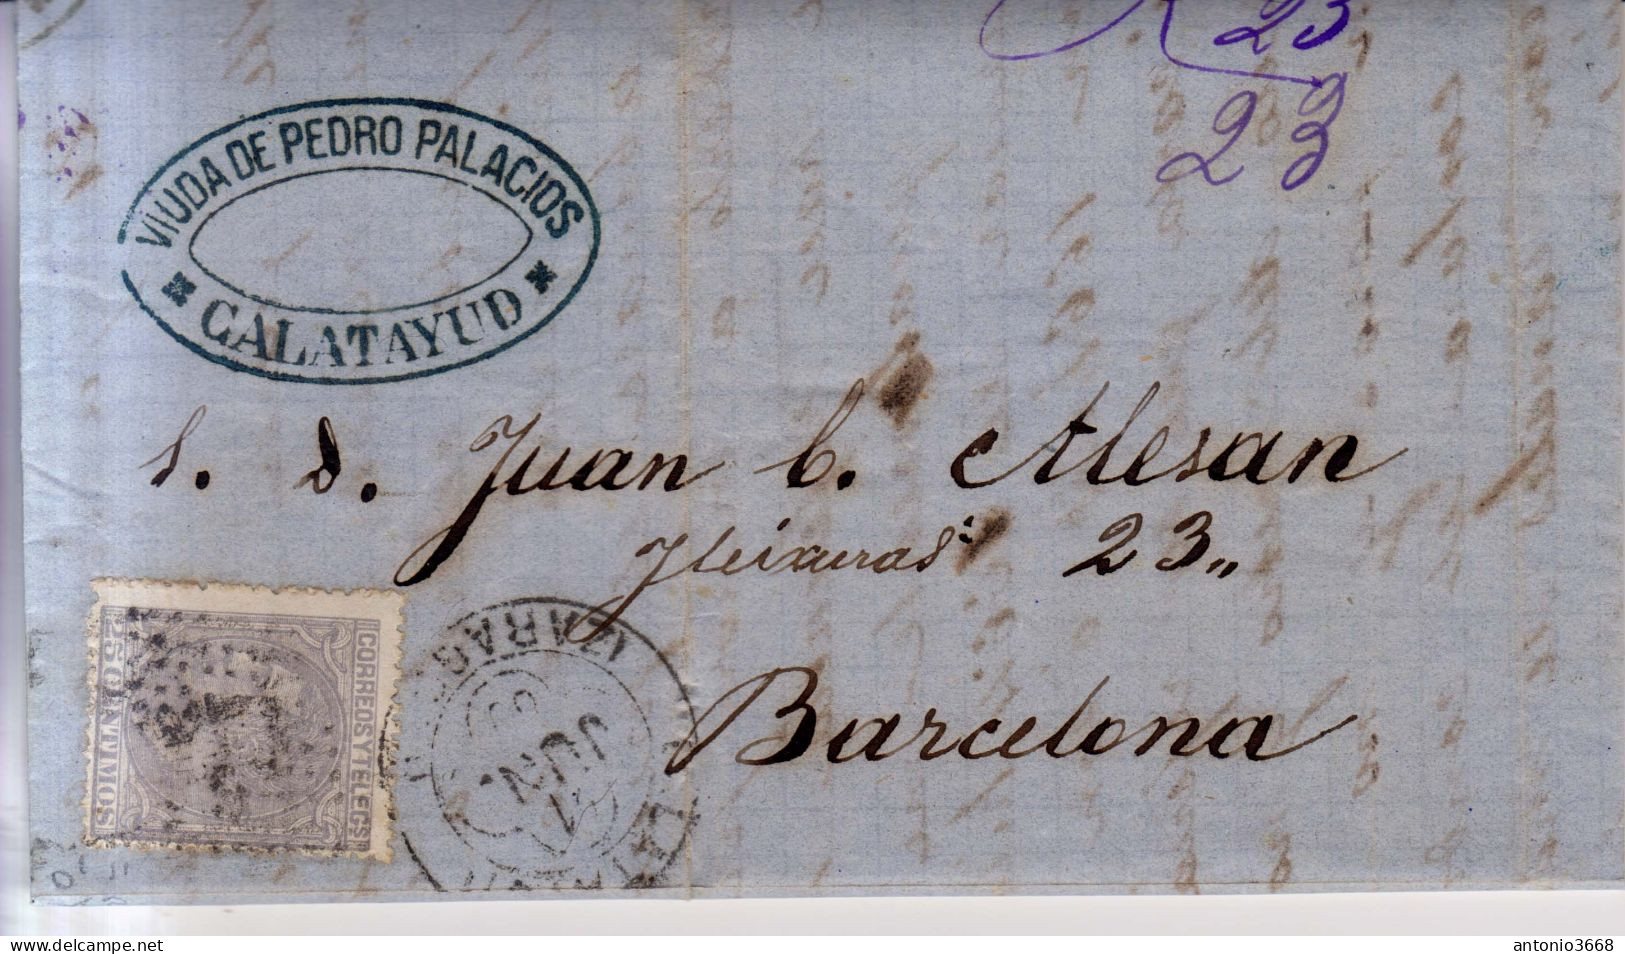 23
23
VIUDA DE PEDRO PALACIOS
CALATAYUD
S. D. Juan C. Alesan
23„
Barcelona
CORREOS Y TELEGS
25 CENTIMOS
JUN.
ZARAG
delcampe.net
antonio3668